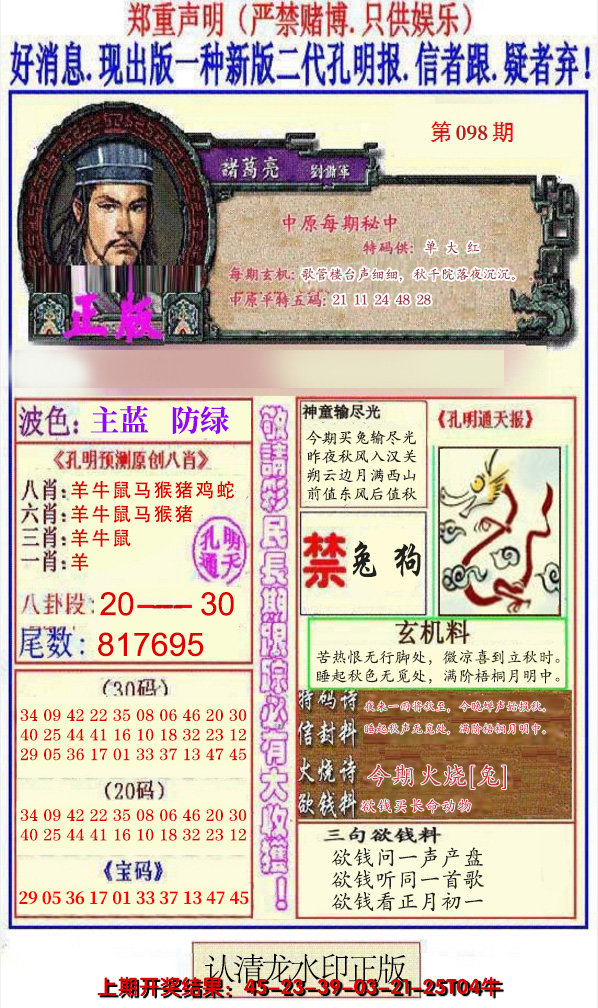 郑重声明（严禁赌博.只供娱乐）
好消息.现出版一种新版二代孔明报.信者跟.疑者弃！
第098期
諸葛亮 劉備軍
中原每期秘中
特码供：单大红
每期玄机：歌管楼台声细细，秋千院落夜沉沉。
中原平特五码：21 11 24 48 28
正版
波色：主蓝 防绿
《孔明预测原创八肖》
八肖：羊牛鼠马猴猪鸡蛇
六肖：羊牛鼠马猴猪
三肖：羊牛鼠
一肖：羊
孔明
通天
八卦段：20——30
尾数：817695
（30码）
34 09 42 22 35 08 06 46 20 30
40 25 44 41 16 10 18 32 23 12
29 05 36 17 01 33 37 13 47 45
（20码）
34 09 42 22 35 08 06 46 20 30
40 25 44 41 16 10 18 32 23 12
《宝码》
29 05 36 17 01 33 37 13 47 45
敬請彩民長期跟踪必有大收獲！
神童输尽光
今期买兔输尽光
昨夜秋风入汉关
朔云边月满西山
前值东风后值秋
《孔明通天报》
禁 兔 狗
玄机料
苦热恨无行脚处，微凉喜到立秋时。
睡起秋色无觅处，满阶梧桐月明中。
特码诗
夜来一雨将秋至，今晚蝉声始报秋。
信封料
睡起秋声无觅处，满阶梧桐月明中。
火烧诗
今期火烧[兔]
欲钱料
欲钱买长命动物
三句欲钱料
欲钱问一声产盘
欲钱听同一首歌
欲钱看正月初一
认清龙水印正版
上期开奖结果：45-23-39-03-21-25T04牛